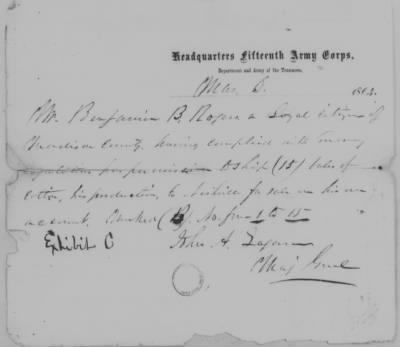 Headquarters Fifteenth Army Corps,
Department and Army of the Tennessee,
Mar 186
Mr. Benjamin B. Rogers a Loyal citizen of
Madison County, having complied with
has permission to ship (15) bales of
cotton, his production, to for sale on his own
account. Marked (R). No. from 1 to 15
Exhibit C
Jno. A. Logan
Maj Genl